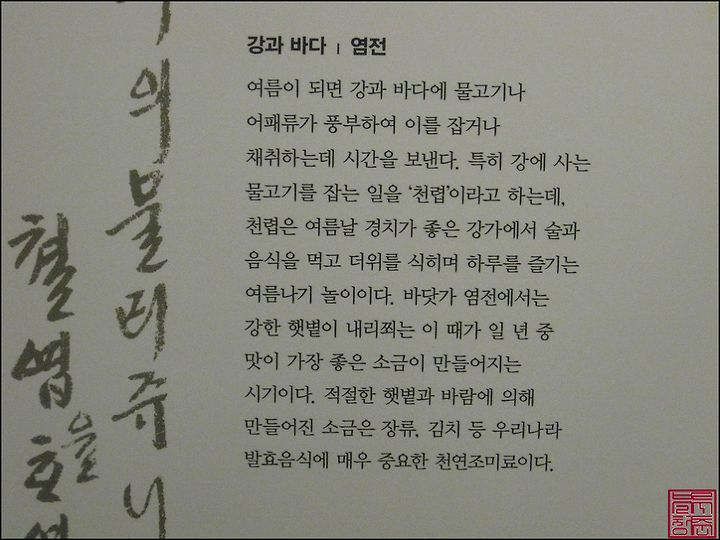 강과 바다 | 염전
여름이 되면 강과 바다에 물고기나
어패류가 풍부하여 이를 잡거나
채취하는데 시간을 보낸다. 특히 강에 사는
물고기를 잡는 일을 ‘천렵’이라고 하는데,
천렵은 여름날 경치가 좋은 강가에서 술과
음식을 먹고 더위를 식히며 하루를 즐기는
여름나기 놀이이다. 바닷가 염전에서는
강한 햇볕이 내리쬐는 이 때가 일 년 중
맛이 가장 좋은 소금이 만들어지는
시기이다. 적절한 햇볕과 바람에 의해
만들어진 소금은 장류, 김치 등 우리나라
발효음식에 매우 중요한 천연조미료이다.
의물터쥬니
철엽을호